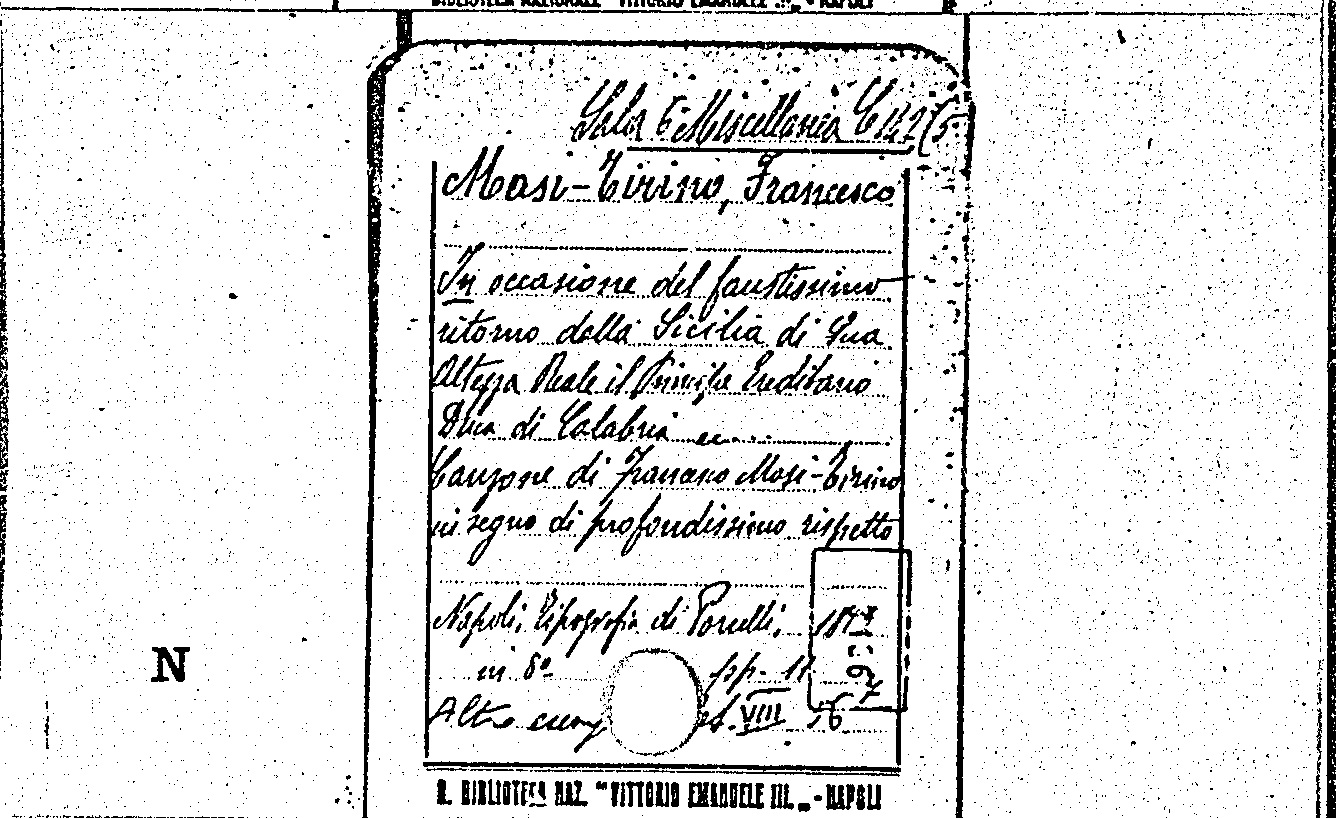 BIBLIOTECA NAZIONALE "VITTORIO EMANUELE III„ - NAPOLI
Sala 6 Miscellanea C 142 (5
Masi-Tirino, Francesco
In occasione del faustissimo
ritorno dalla Sicilia di Sua
Altezza Reale il Principe Ereditario
Duca di Calabria ec....
Canzone di Francesco Masi-Tirino
in segno di profondissimo rispetto
Napoli, Tipografia di Porcelli,
in 8º pp. 11
N
Altro esemp VIII
R. BIBLIOTECA NAZ. "VITTORIO EMANUELE III.„ - NAPOLI